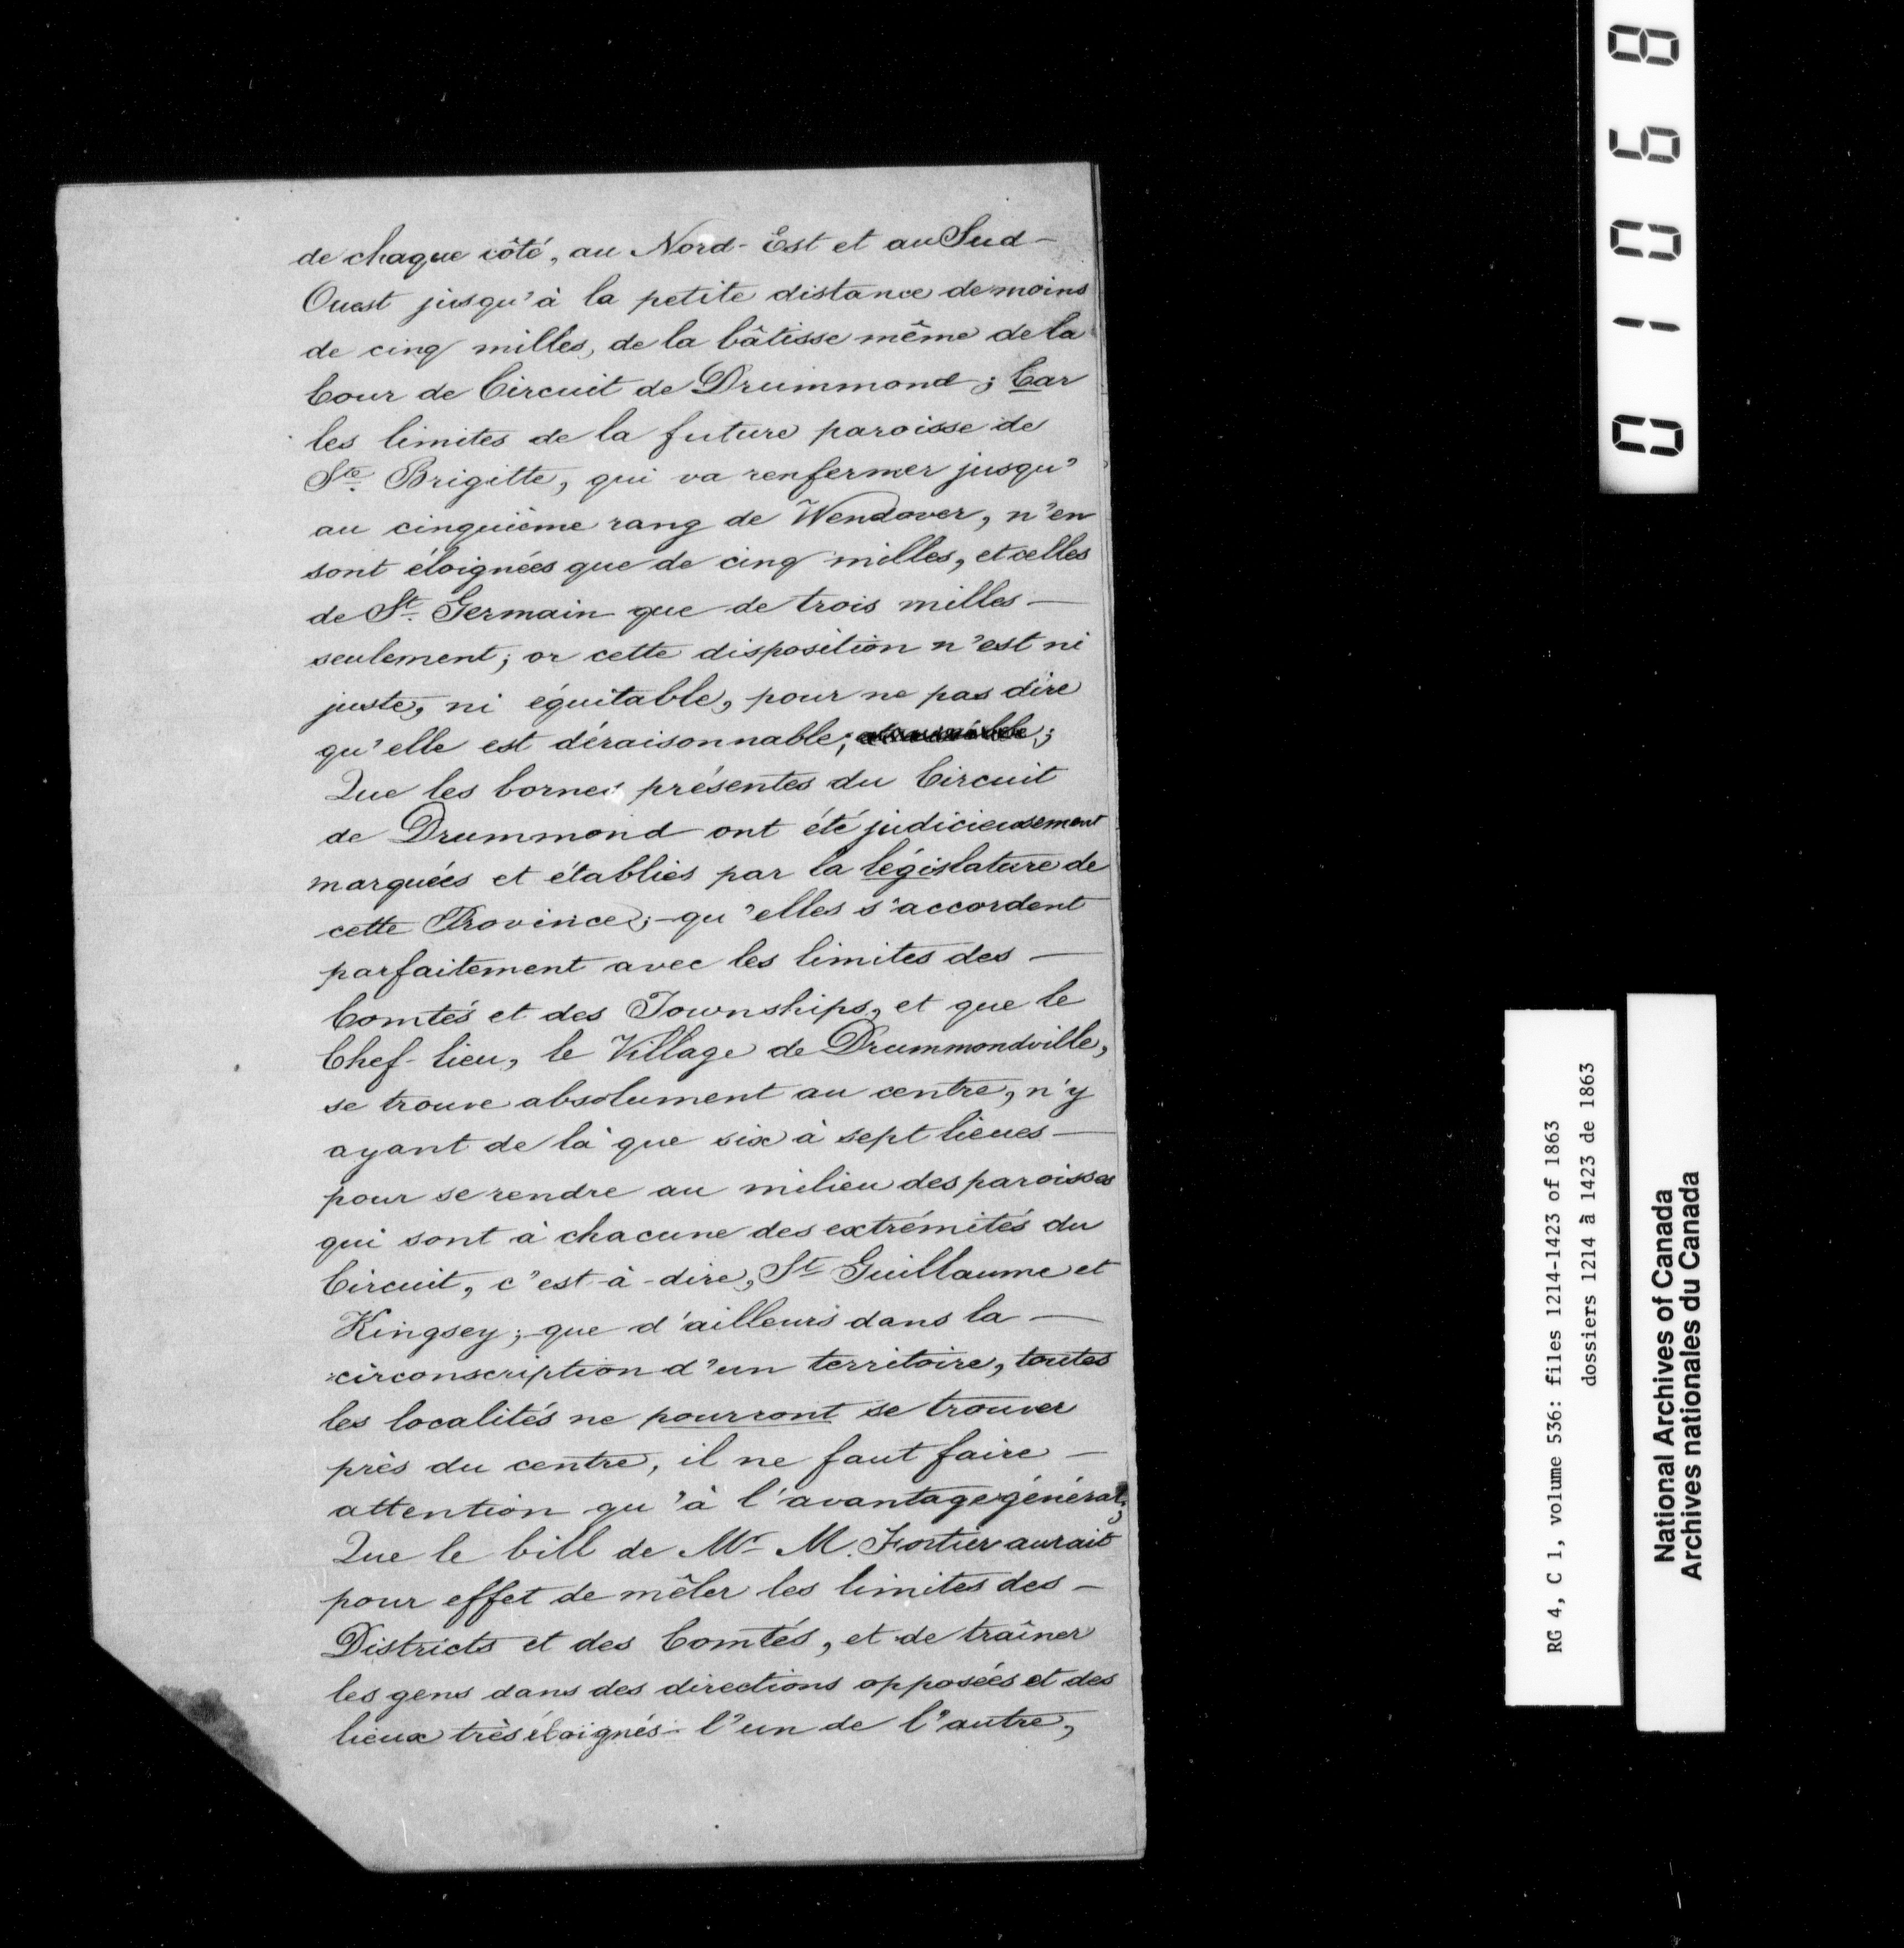 de chaque côté, au Nord-Est et au Sud-
Ouest jusqu'à la petite distance de moins
de cinq milles, de la bâtisse même de la
Cour de Circuit de Drummond; Car
les limites de la future paroisse de
Ste. Brigitte, qui va renfermer jusqu'
au cinquième rang de Wendover, n'en
sont éloignées que de cinq milles, et celles
de St. Germain que de trois milles —
seulement; or cette disposition n'est ni
juste, ni équitable, pour ne pas dire
qu'elle est déraisonnable; ;
Que les bornes présentes du Circuit
de Drummond ont été judicieusement
marquées et établies par la législature de
cette Province; qu'elles s'accordent
parfaitement avec les limites des —
Comtés et des Townships, et que le
Chef-lieu, le Village de Drummondville,
se trouve absolument au centre, n'y
ayant de là que six à sept lieues —
pour se rendre au milieu des paroisses
qui sont à chacune des extrémités du
Circuit, c'est-à-dire, St Guillaume et
Kingsey; que d'ailleurs dans la —
circonscription d'un territoire, toutes
les localités ne pourront se trouver
près du centre, il ne faut faire —
attention qu'à l'avantage général;
Que le bill de Mr M. Fortier aurait
pour effet de mêler les limites des —
Districts et des Comtés, et de traîner
les gens dans des directions opposées et des
lieux très éloignés l'un de l'autre,
01068
RG 4, C 1, volume 536: files 1214-1423 of 1863
dossiers 1214 à 1423 de 1863
National Archives of Canada
Archives nationales du Canada